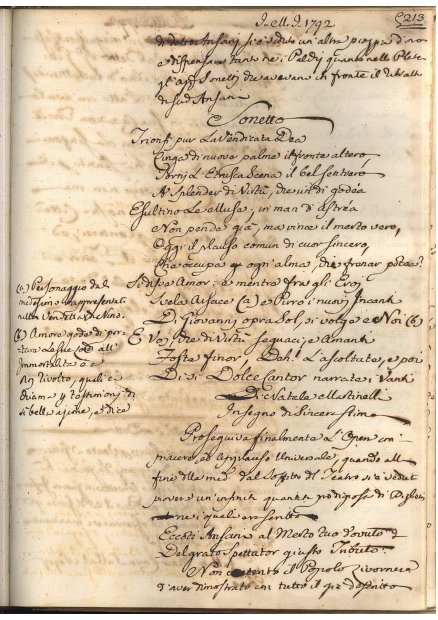 213
di detto Ansani si è veduto un'altra pioggia d'oro
e dispensare tanto ne i Palchi quanto nelle Platee
gli aff. Sonetti che avevano in fronte il
di sud. Ansani
Sonetto
Trionfi pur La Vendicata Dea
Cinga di nuove palme il fronte altero
Torni L'Etrusca Scena il bel sentiero
A Splender di Virtù, che
Esultino Le Muse, in man d'Astréa
Non penda già, ma vince il merto vero,
Oggi il plauso comun di cuor sincero,
Che occupa ogn'alma, che frenar potea?
Amor: e mentre fra gli Eroj
Svela Arsace (a) e Pirro i nuovi Incanti
Di Giovanni opra sol, si volge a Noi (b)
E Voi, dice di Virtù seguaci, e Amanti
Foste finor, Deh! L'ascoltate, e poi
Di sì Dolce Cantor narrate i Vanti
Di Natale
In segno di Sincera Stima
(a) Personaggio dal
medesimo rappresentato
nella Vendetta di Nino.
(b) Amore gode di por-
tare Le sue Lodi all'
Immortalità e a
Noi rivolto, quasi
chiama p testimonj di
sì bella azione, e dice
Proseguiva finalmente L'Opera con
sincero, ed applauso Universale, quando alla
fine della med. dal Soffitto del Teatro si è veduto
piovere un'infinita quantità prodigiosa di
ne i quali era scritto
Eccoti Ansani al Merto tuo dovuto
Del grato Spettator giusto Tributo.
Non contento il Popolo Livornese
d'aver dimostrato con tutto il già descritto